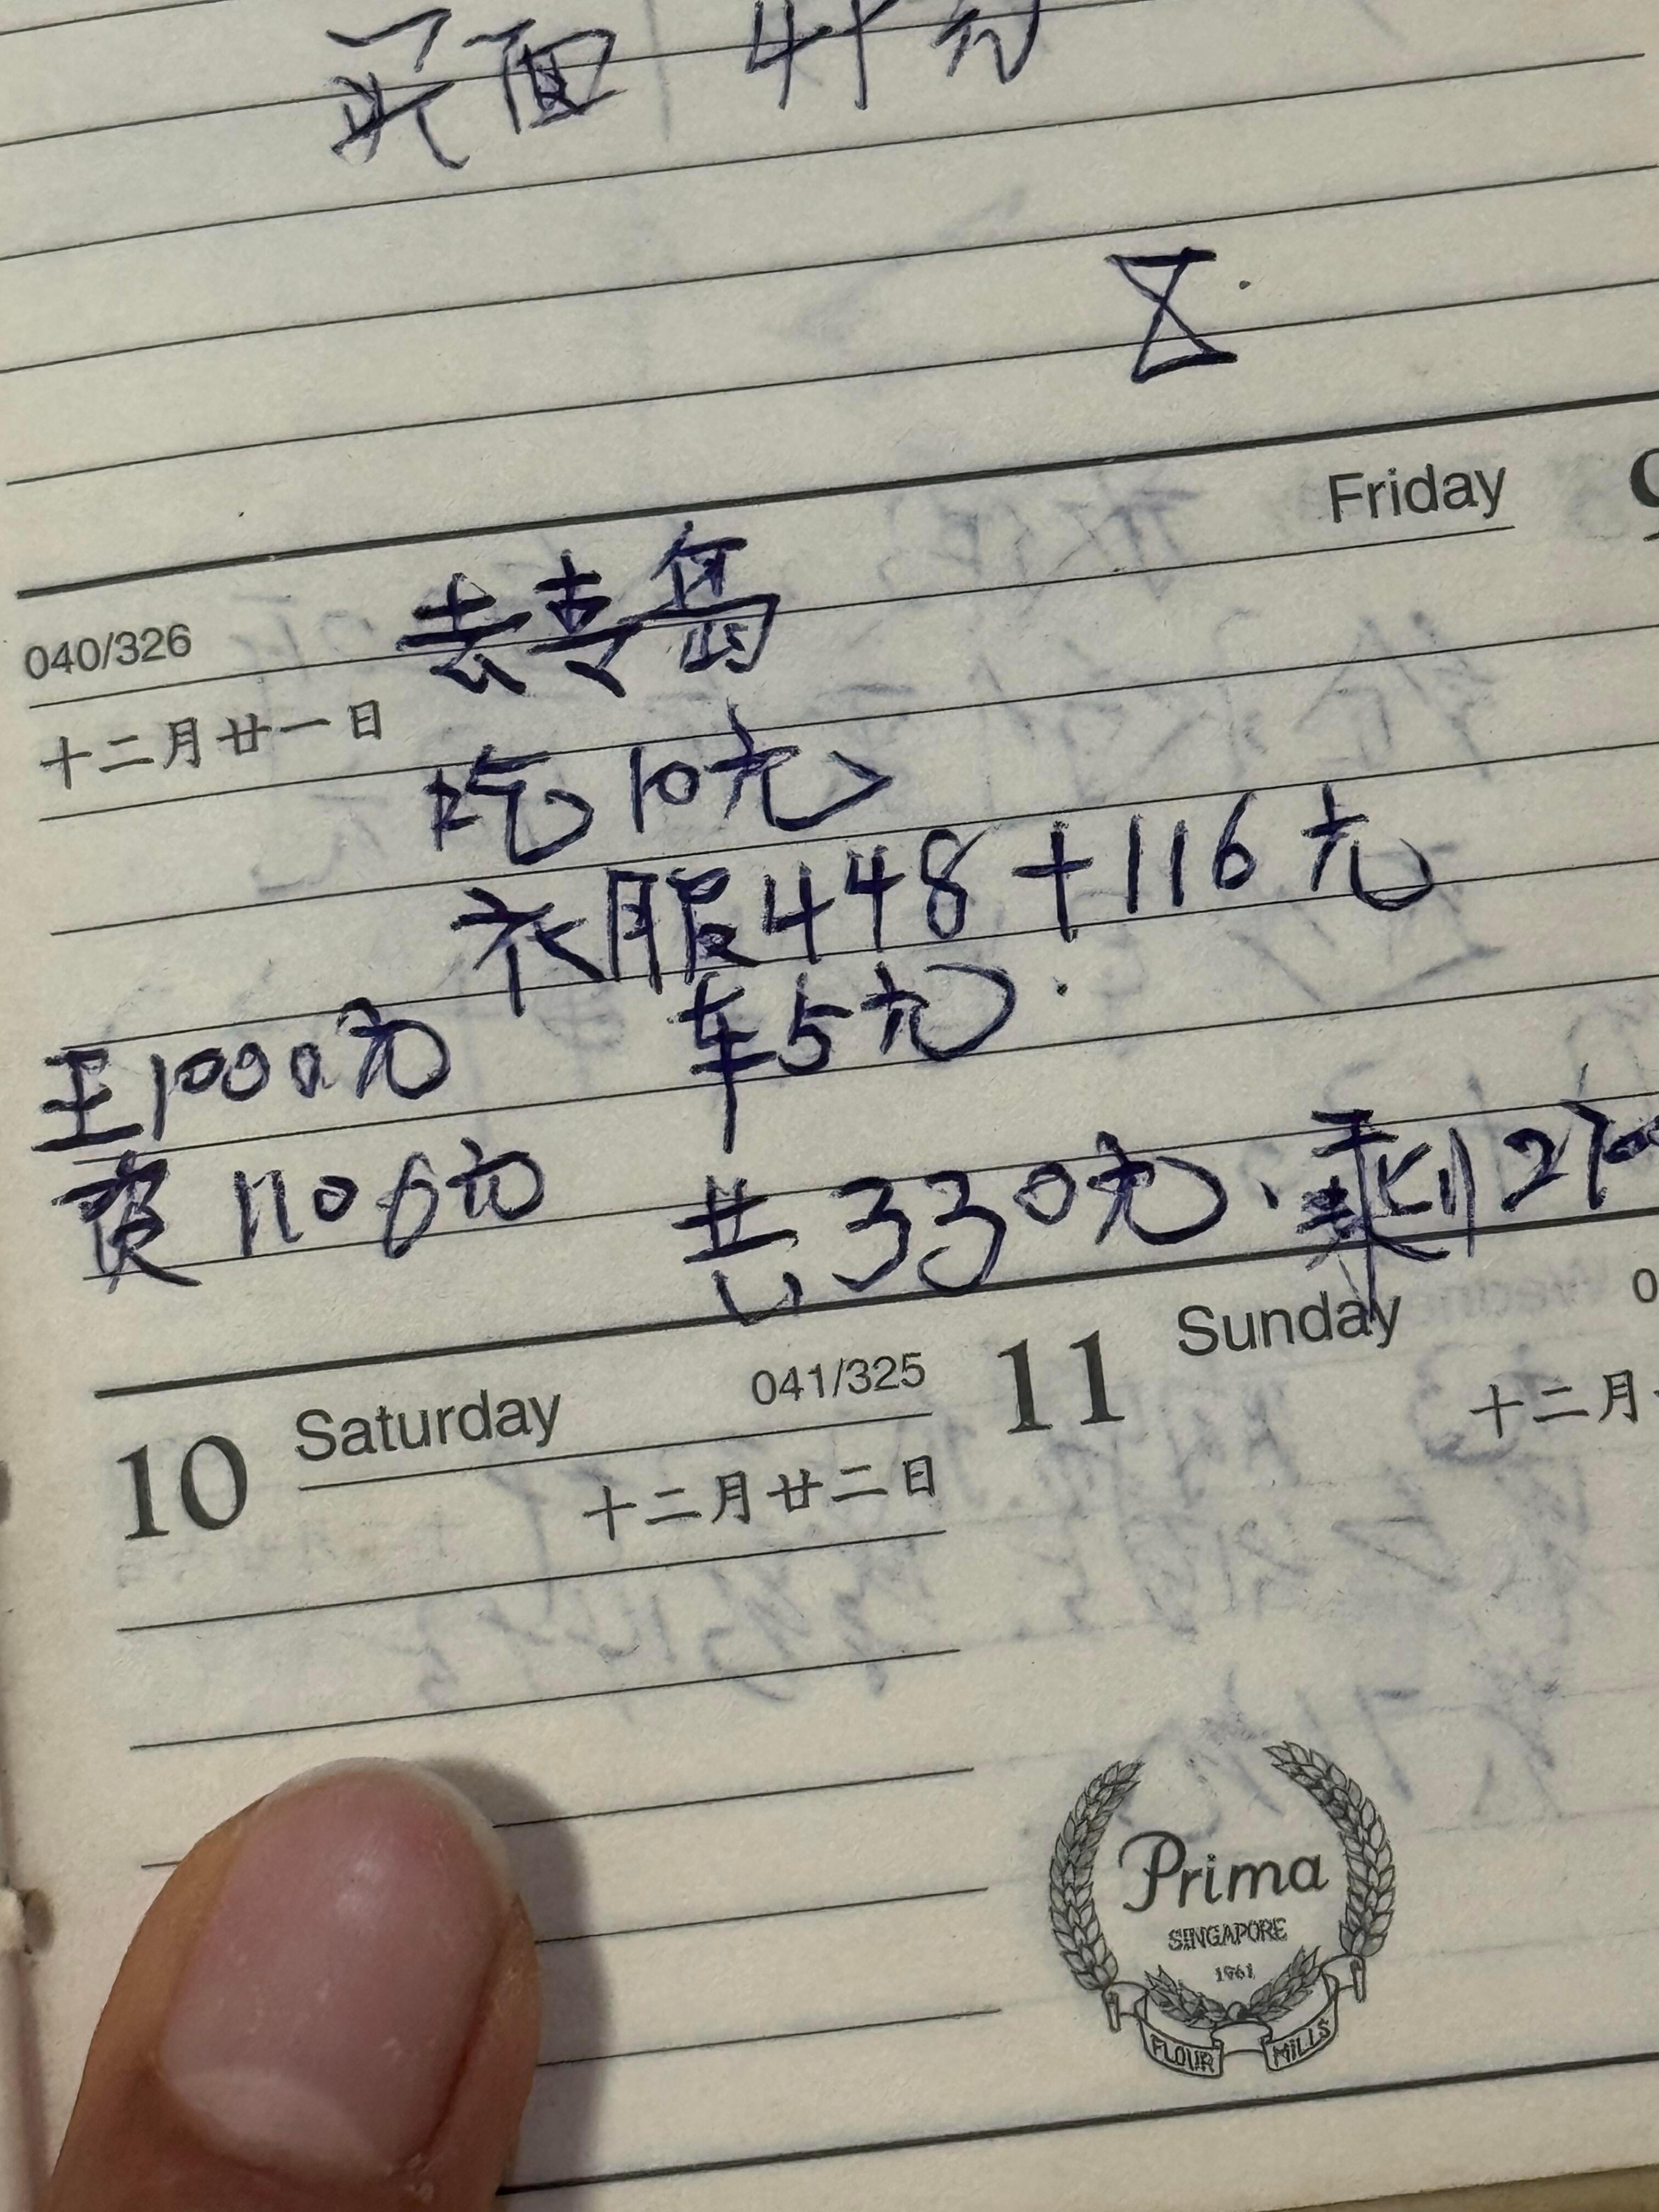 买面 4
Friday 9
040/326
去青岛
十二月廿一日
吃10元
衣服448+116元
车5元.
王1000元
共330元.剩
1106元
10 Saturday 041/325
十二月廿二日
11 Sunday
十二月
Prima
SINGAPORE
1961
FLOUR MILLS